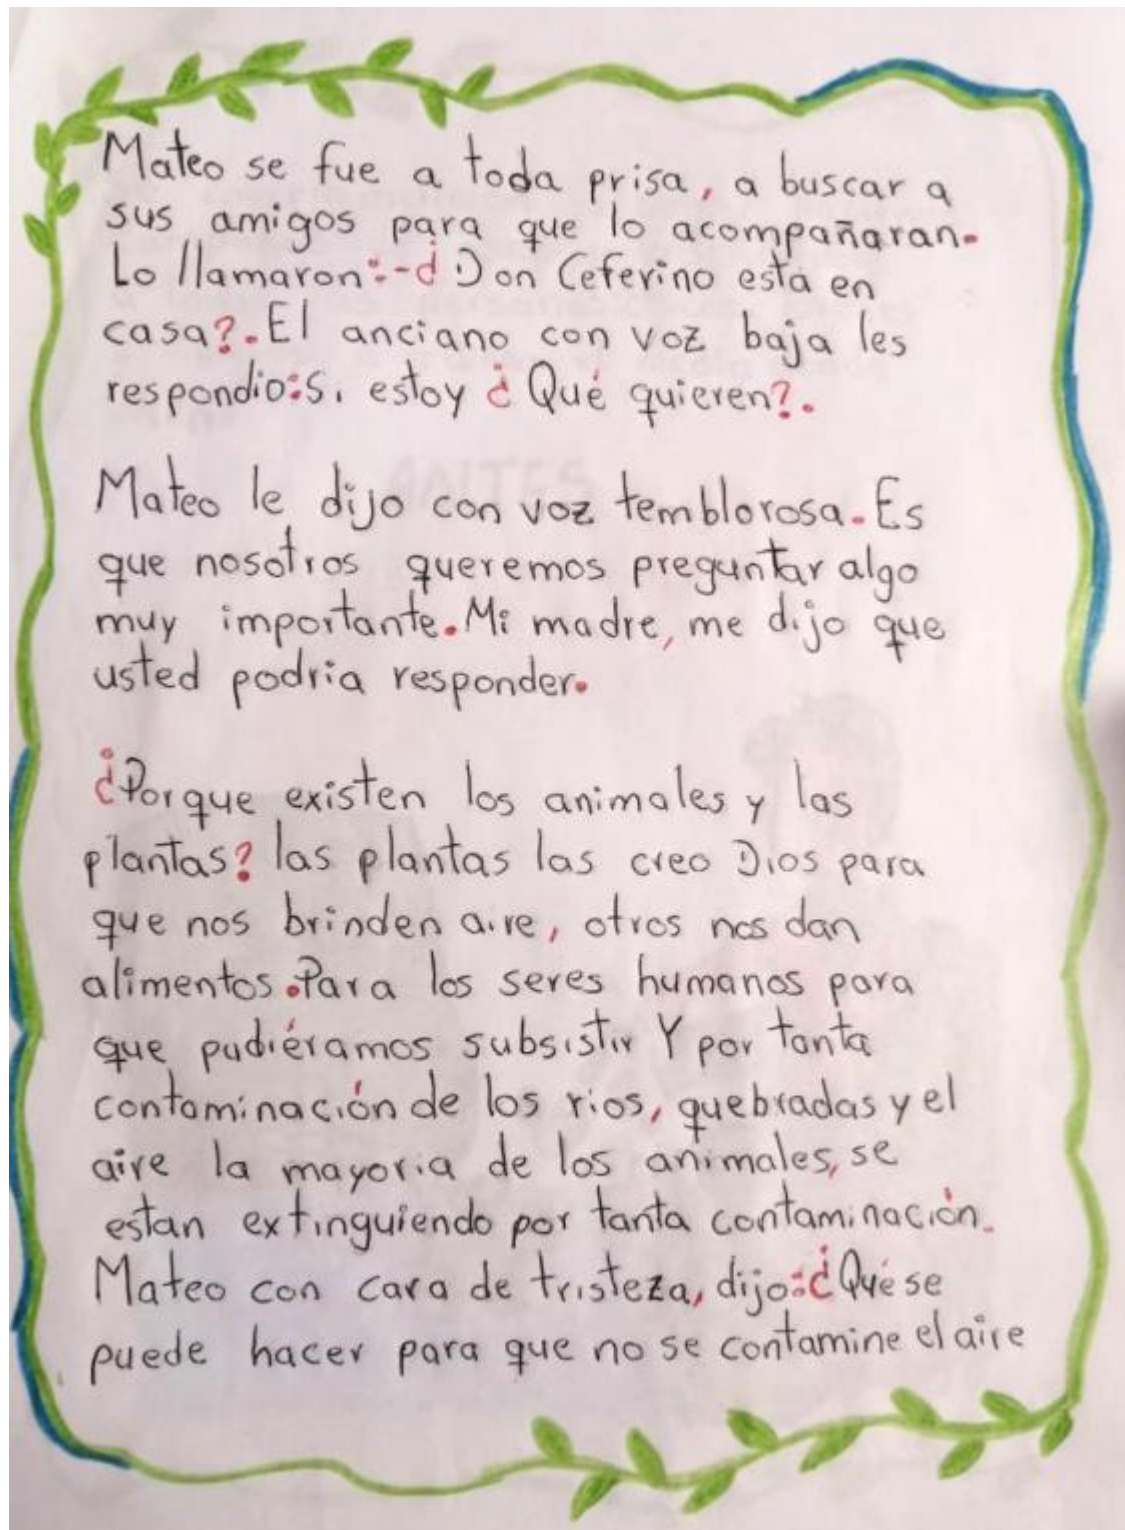 Mateo se fue a toda prisa, a buscar a
sus amigos para que lo acompañaran.
Lo llamaron:-¿Don Ceferino está en
casa?.El anciano con voz baja les
respondio:Si estoy ¿Qué quieren?.
Mateo le dijo con voz temblorosa.Es
que nosotros queremos preguntar algo
muy importante.Mi madre, me dijo que
usted podría responder.
¿Porque existen los animales y las
plantas? las plantas las creo Dios para
que nos brinden aire, otros nos dan
alimentos.Para los seres humanos para
que pudiéramos subsistir Y por tanta
contaminación de los rios, quebradas y el
aire la mayoria de los animales, se
estan extinguiendo por tanta contaminación.
Mateo con cara de tristeza, dijo:¿Qué se
puede hacer para que no se contamine el aire